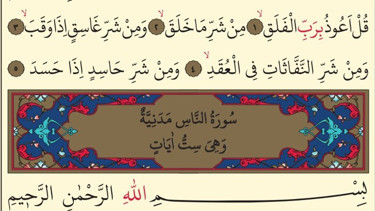 قُلْ اَعُوذُ بِرَبِّ الْفَلَقِۙ ﴿١﴾ مِنْ شَرِّ مَا خَلَقَۙ ﴿٢﴾ وَمِنْ شَرِّ غَاسِقٍ اِذَا وَقَبَۙ ﴿٣﴾
وَمِنْ شَرِّ النَّفَّاثَاتِ فِى الْعُقَدِۙ ﴿٤﴾ وَمِنْ شَرِّ حَاسِدٍ اِذَا حَسَدَ ﴿٥﴾
سُورَةُ النَّاسِ مَدَنِيَّةٌ
وَهِىَ سِتُّ اٰيَاتٍ
بِسْمِ اللهِ الرَّحْمٰنِ الرَّحِيمِ